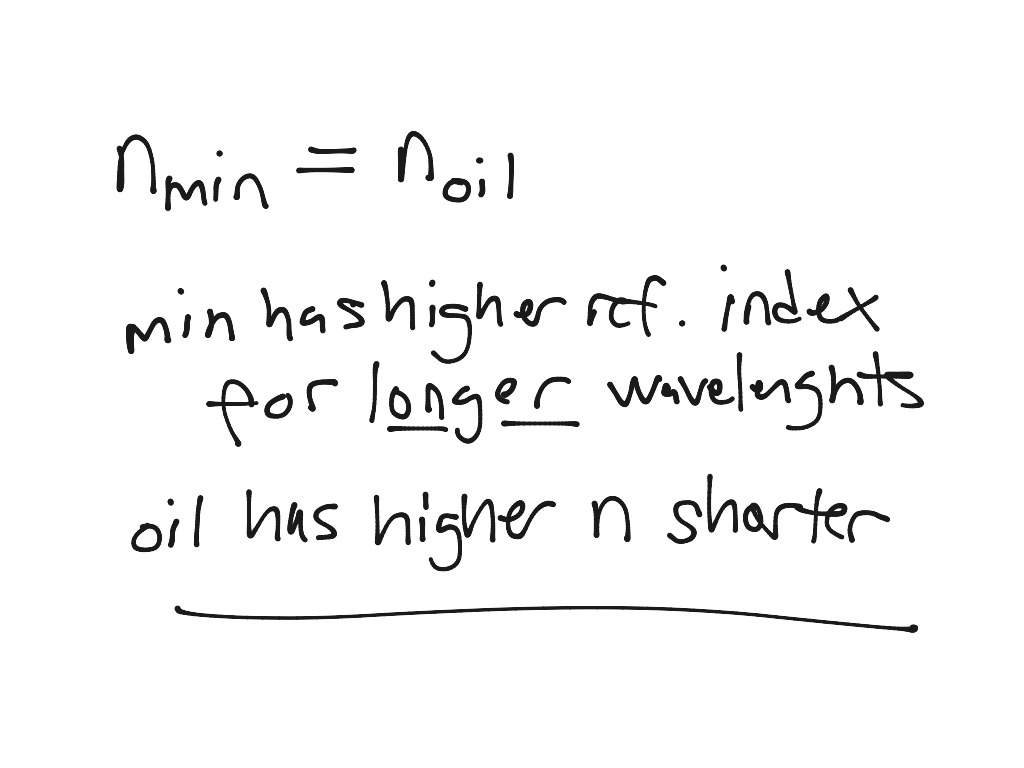 n_min = n_oil
min has higher ref. index
for longer wavelenghts
oil has higher n shorter